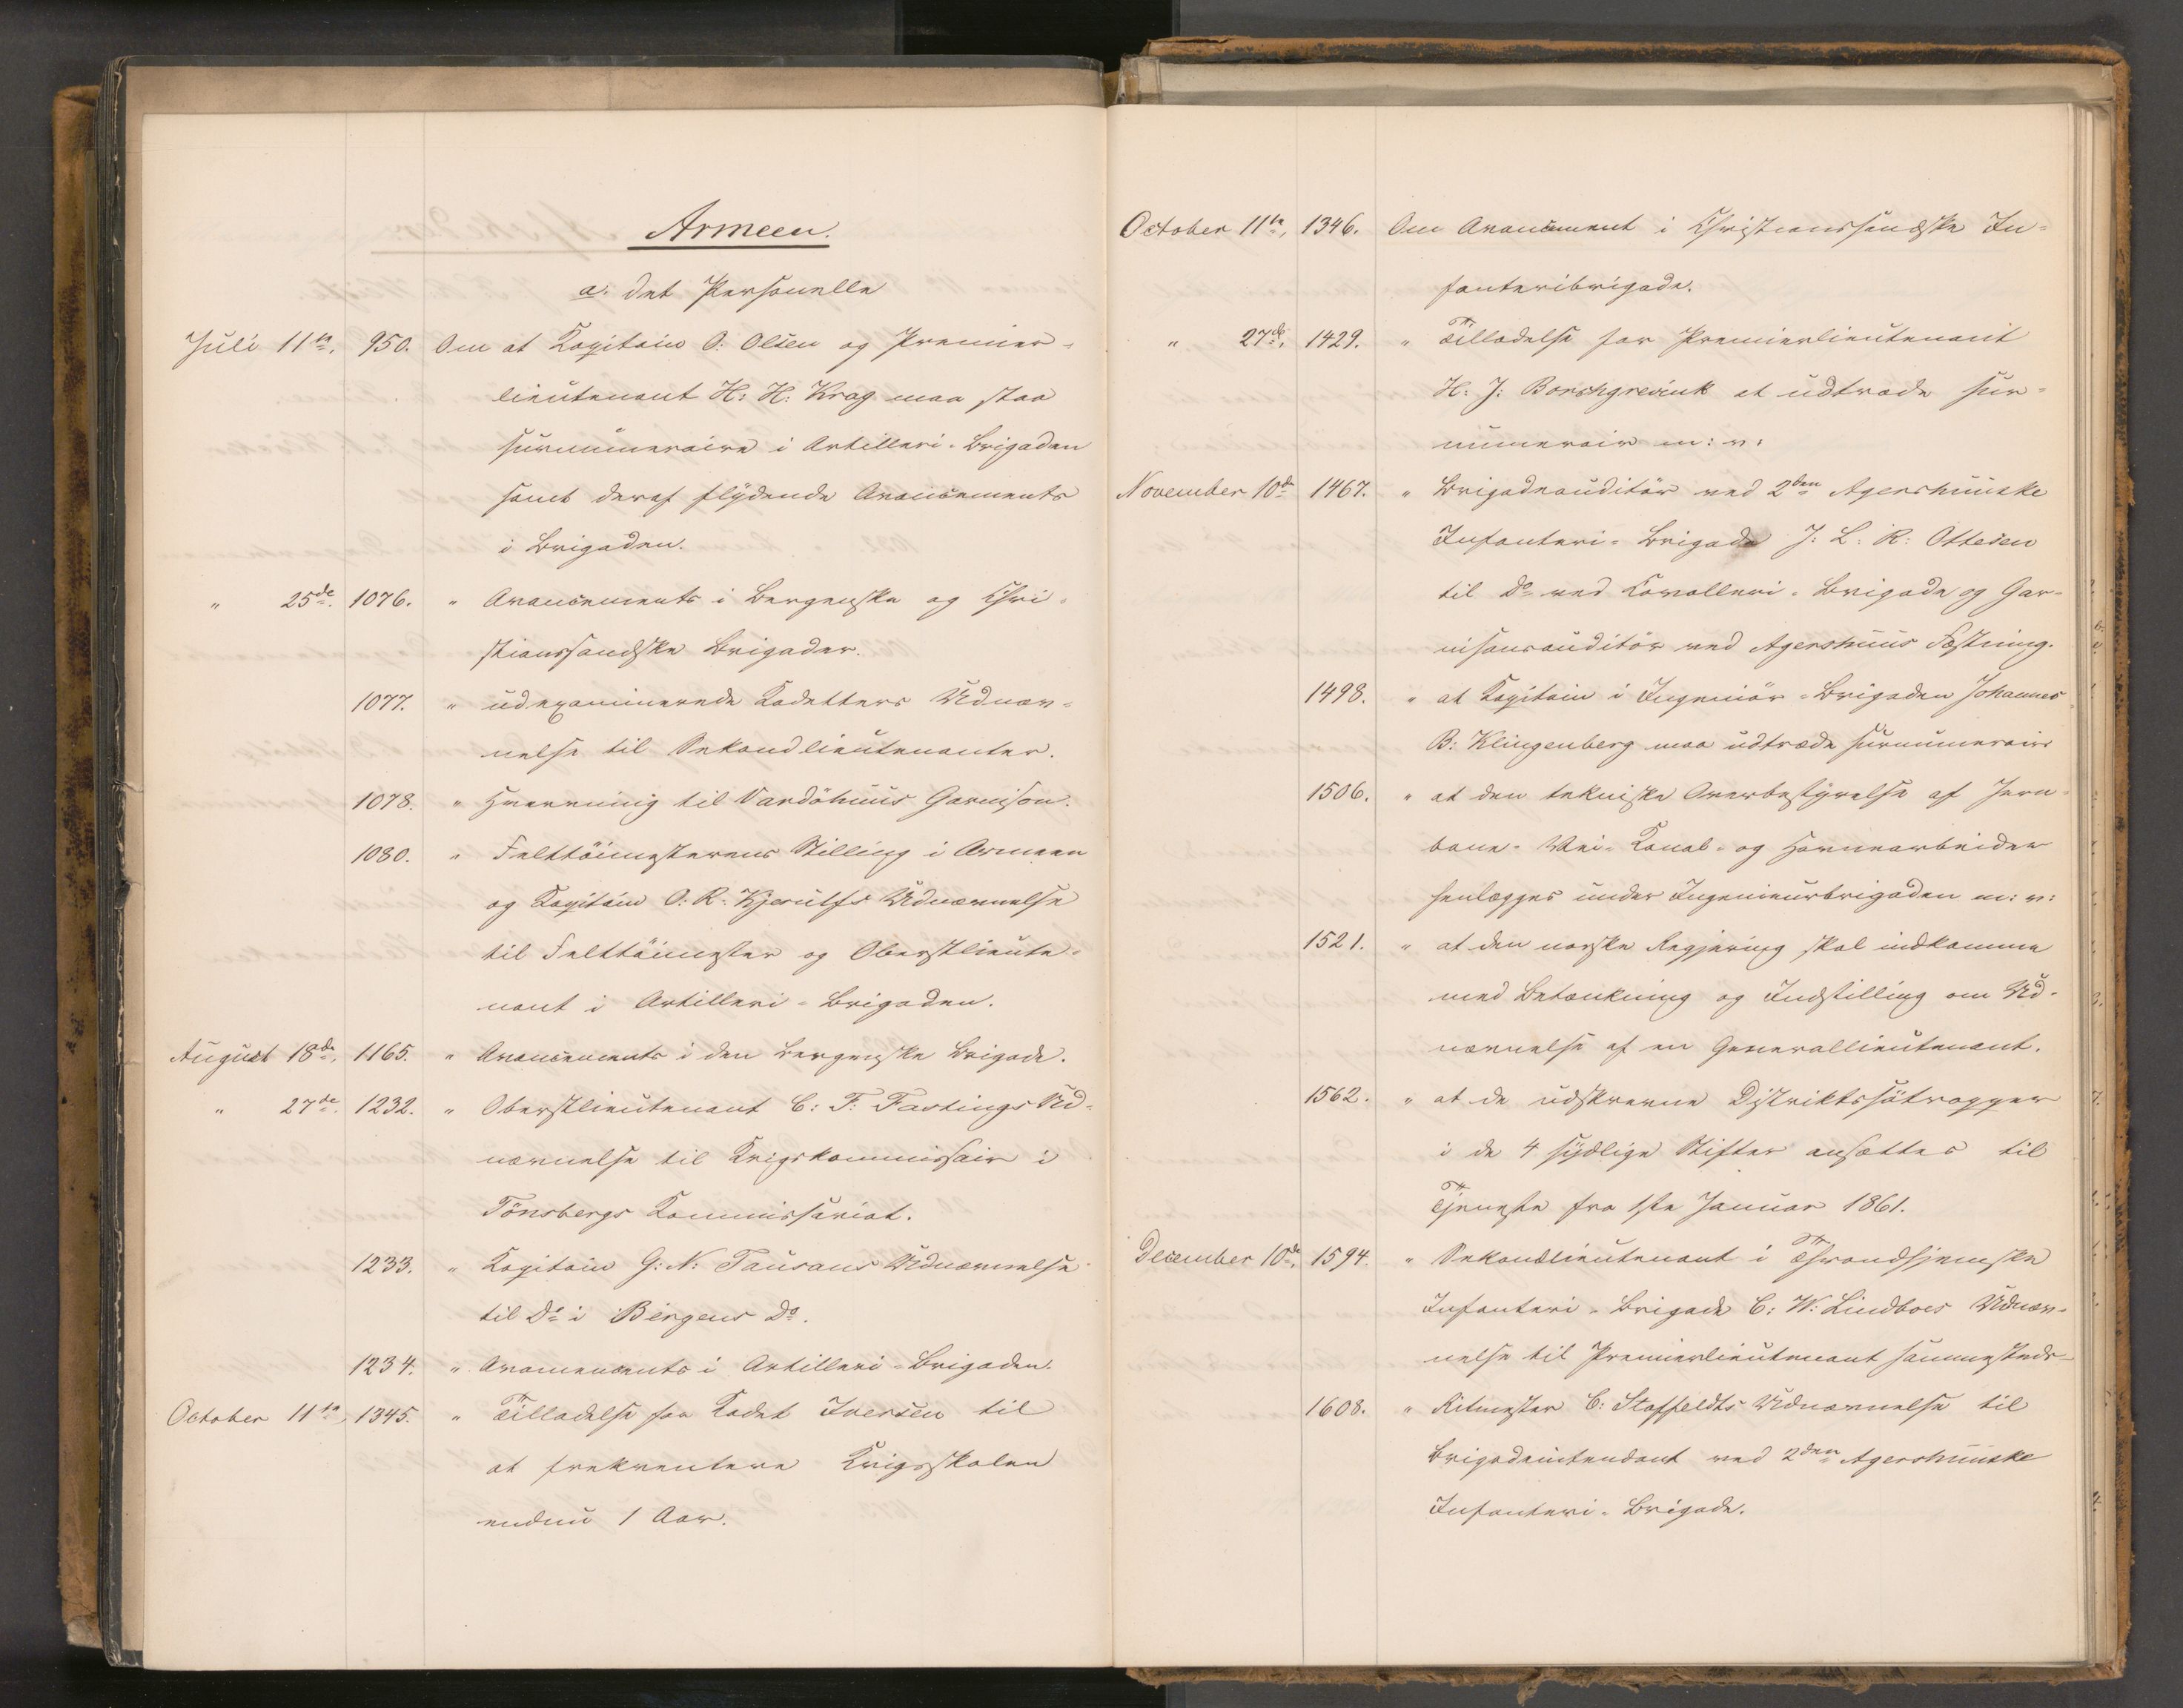 Armeen.
a. det Personelle
Juli 11te, 950. Om at Kapitain O: Olsen og Premier-
lieutenant H: H: Krag maa staa
surnumeraire i Artilleri-Brigaden
samt deraf flydende Avancements
i Brigaden.
" 25de. 1076. " Avancements i Bergenske og Chri-
stianssandske Brigader.
1077. " udexaminerede Kadetters Udnæv-
nelse til Sekondlieutenanter.
1078. " Hverrving til Vardöhuus Garnison.
1080. " Felttöimesterens Stilling i Armeen
og Kapitain O: R: Kjerulfs Udnævnelse
til Felttöimester og Oberstlieute-
nant i Artilleri-Brigaden.
August 18de, 1165. " Avancements i den Bergenske Brigade.
" 27de. 1232. " Oberstlieutenant C: F: Fastings Ud-
nævnelse til Krigskommissair i
Tönsbergs Kommissariat.
1233. " Kapitain G: N: Tausans Udnævnelse
til Do i Bergens Do.
1234. " Avancements i Artilleri-Brigaden.
October 11te, 1345. " Tilladelse for Kadet Iversen til
at frekventere Krigsskolen
endnu 1 Aar.
October 11te, 1346. Om Avancement i Christianssandske In-
fanteribrigade.
" 27de, 1429. " Tilladelse for Premierlieutenant
H: J: Borchgrevink at udtræde sur-
numerair m: v:
November 10de 1467. " Brigadeauditör ved 2den Agershuuske
Infanteri-Brigade J: L: R: Ottesen
til Do ved Kavalleri-Brigade og Gar-
nisonsauditör ved Agershuus Fæstning.
1498. " at Kapitain i Ingeniör-Brigaden Johannes
B: Klingenberg maa udtræde surnumerair
1506. " at den tekniske Overbestyrelse af Jern-
bane- Vei- Kanal- og Havnearbeider
henlægges under Ingenieurbrigaden m: v:
1521. " at den norske Regjering skal indkomme
med Betænkning og Indstilling om Ud-
nævnelse af en Generallieutenant.
1562. " at de udskrevne Distriktssötropper
i de 4 sydlige Stifter ansættes til
Tjeneste fra 1ste Januar 1861.
December 10de, 1594. " Sekondlieutenant i Throndhjemske
Infanteri-Brigade C: W: Lindboes Udnæv-
nelse til Premierlieutenant sammesteds
1608. " Ritmester C: Staffeldts Udnævnelse til
Brigadeintendant ved 2den Agershuuske
Infanteri-Brigade.